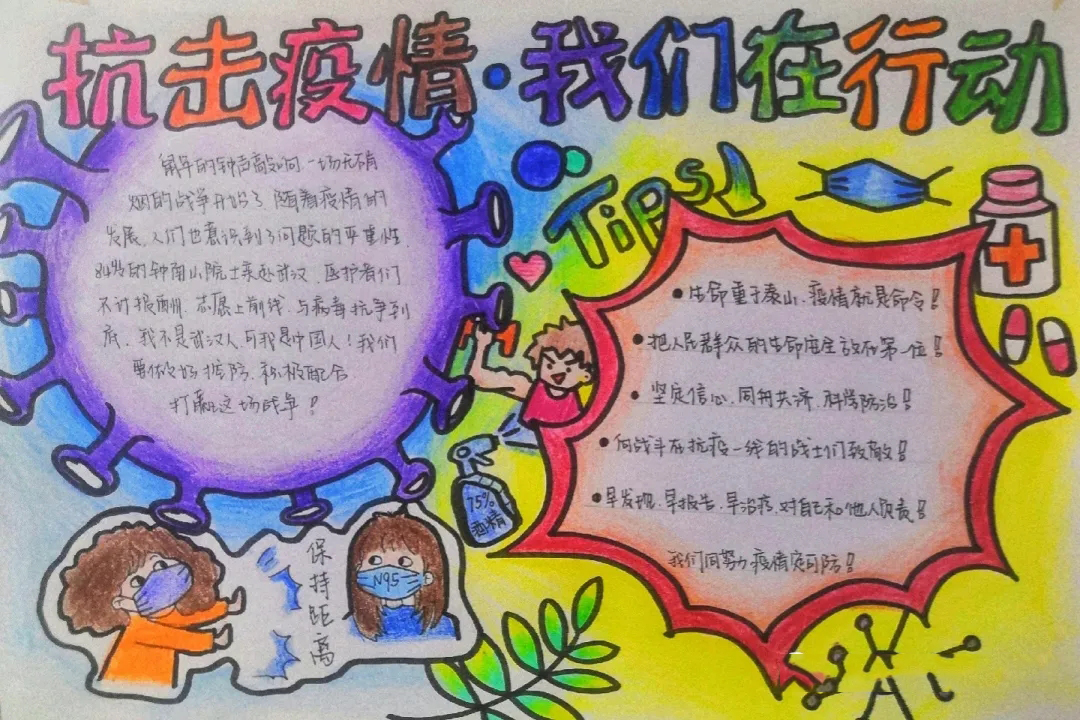 抗击疫情·我们在行动
鼠年的钟声敲响一场无硝
烟的战争开始了,随着疫情的
发展,人们也意识到了问题的严重性,
84岁的钟南山院士奔赴武汉,医护者们
不计报酬,志愿上前线,与病毒抗争到
底,我不是武汉人可我是中国人!我们
要做好措防,积极配合
打赢这场战争!
Tips!
生命重于泰山,疫情就是命令!
把人民群众的生命安全放在第一位!
坚定信心,同舟共济,科学防治!
向战斗在抗疫一线的战士们致敬!
早发现,早报告,早治疗,对自己和他人负责!
我们同努力疫情定可防!
75%
酒精
保持距离
N95